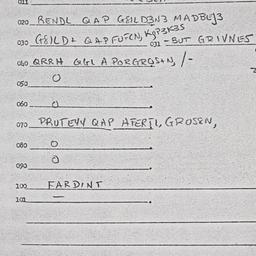 011
020 RENDL QAP GEILD3N3 MADBUJ3
030 GEILD+ QAPFUFCN, KQP3K35
031 - SUT GRIVNES
040 QRRH QGL A PORGROS+N, /-
O
050
060 O
070 PRUTEVY QAP AFERTL, GROSEN,
080 O
O
090
100 FARDINT
101 —